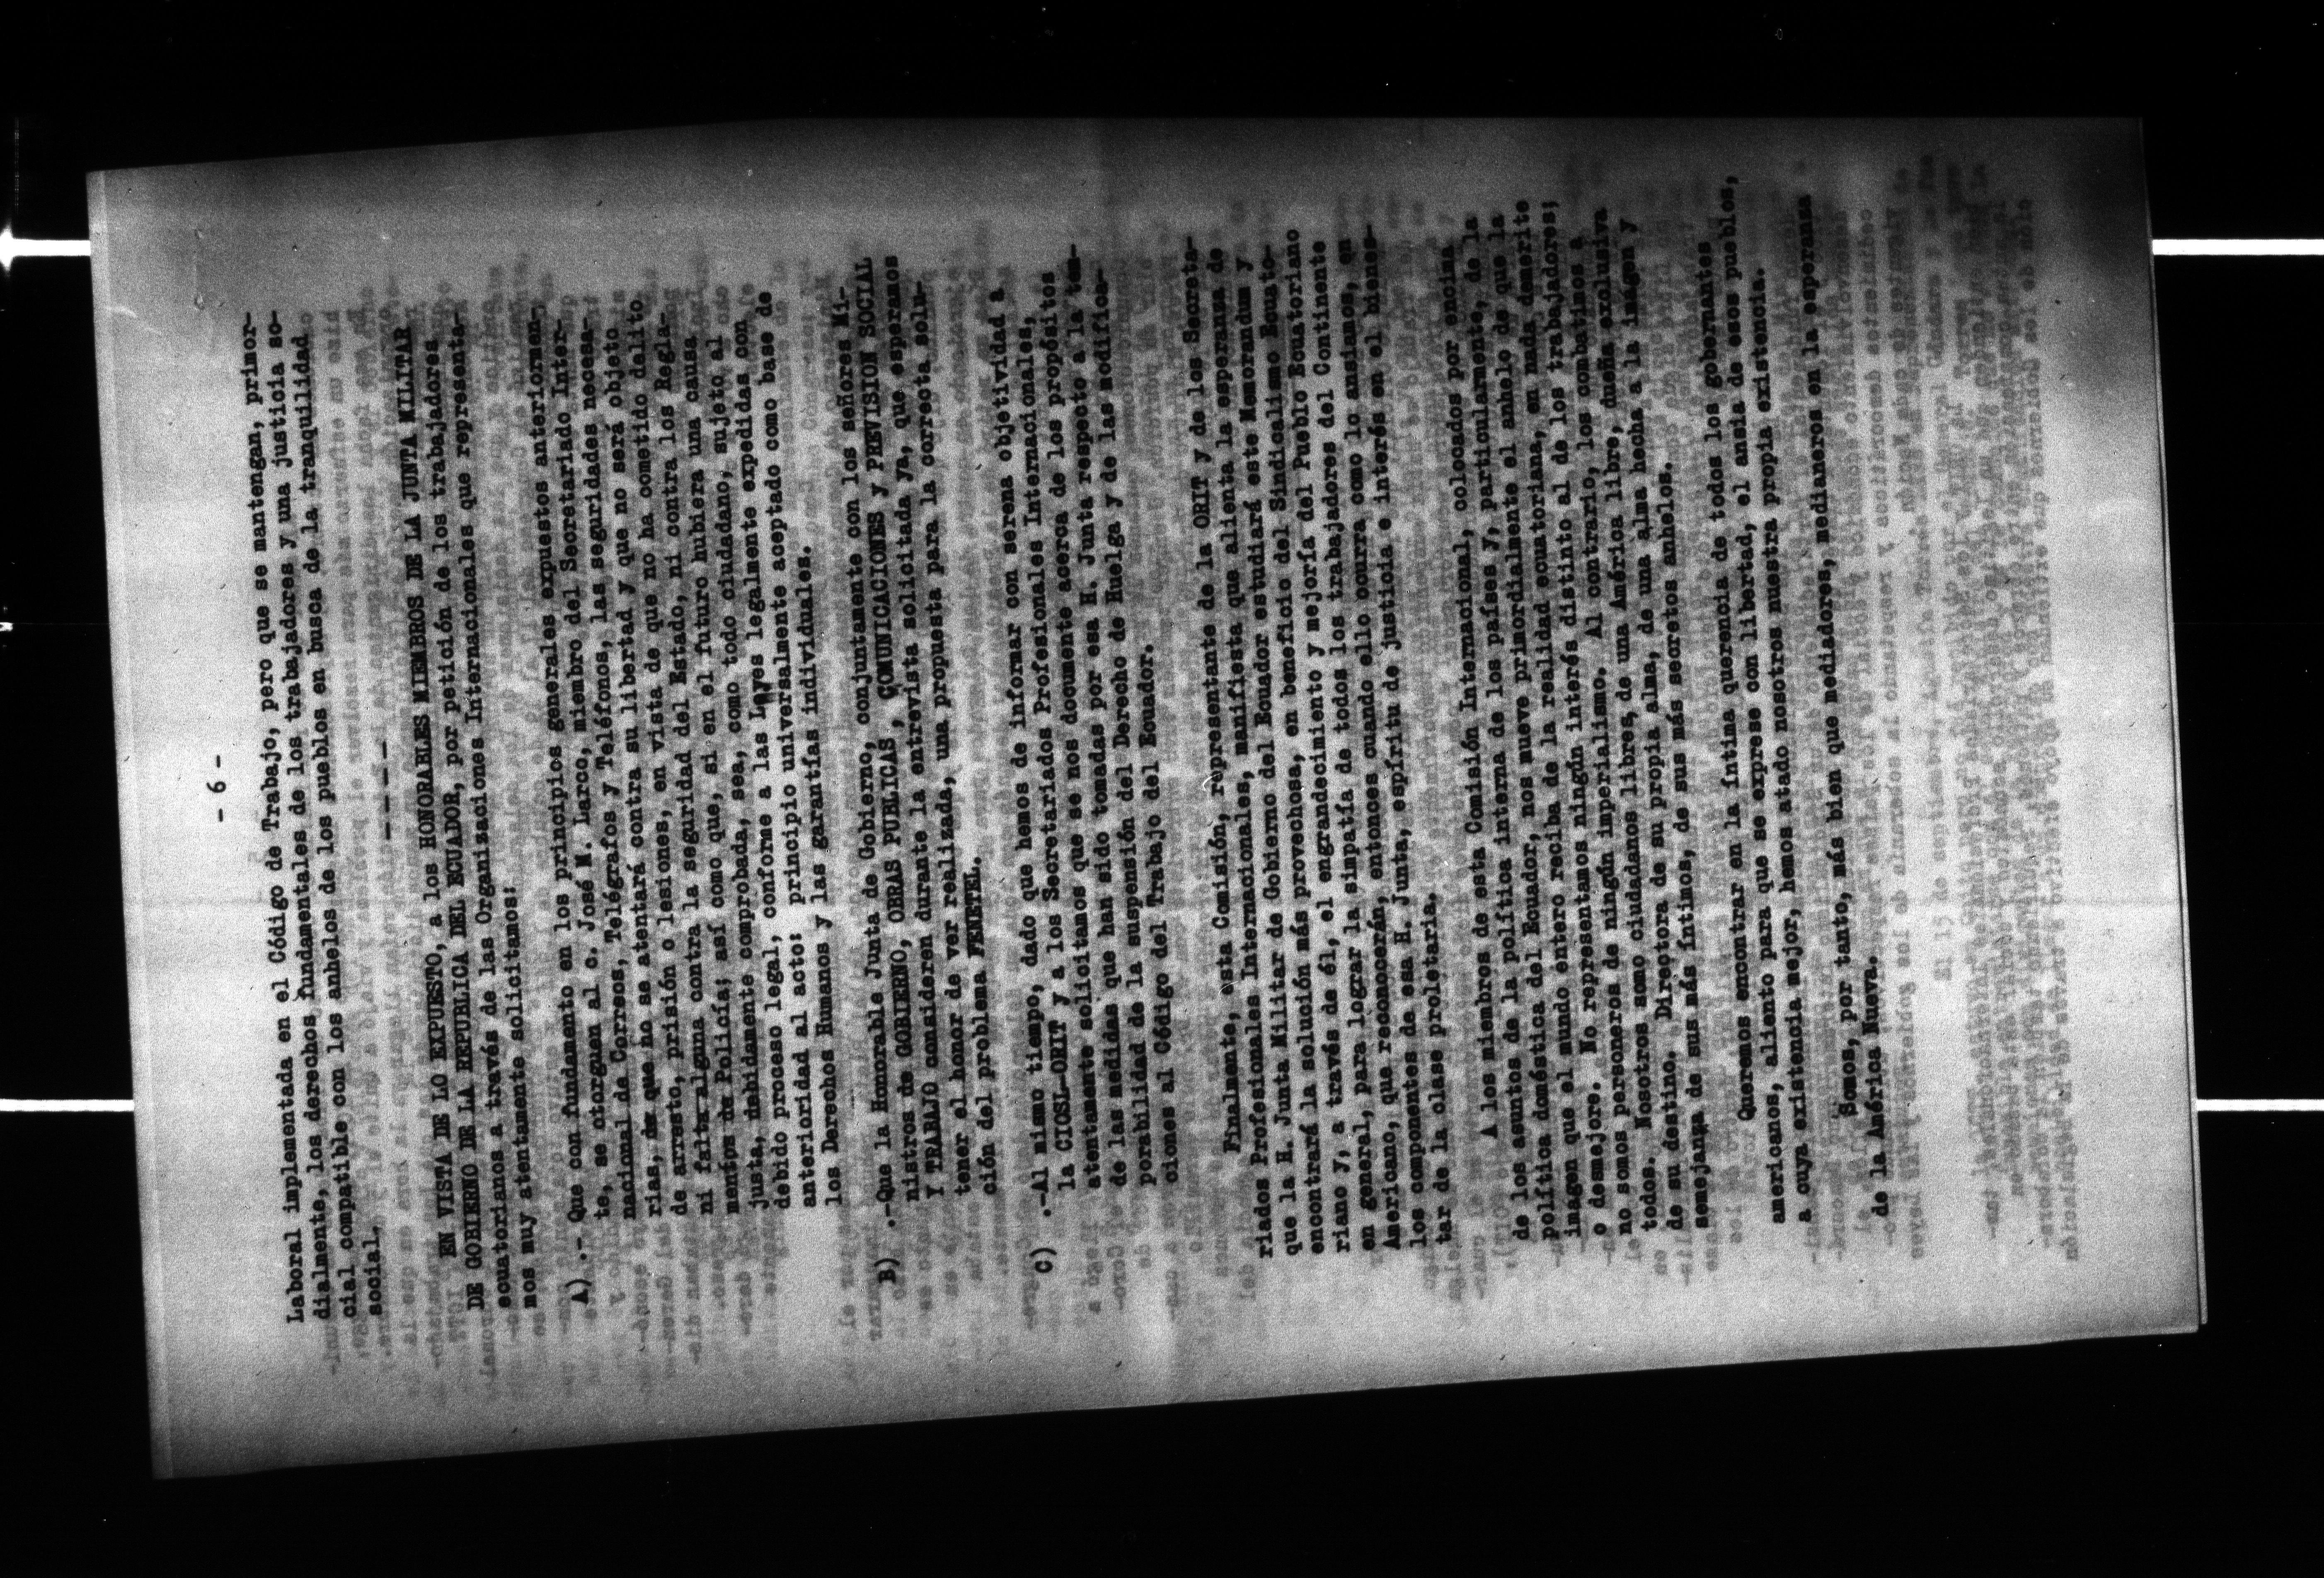 - 6 -
Laboral implementada en el Código de Trabajo, pero que se mantengan, primor-
dialmente, los derechos fundamentales de los trabajadores y una justicia so-
cial compatible con los anhelos de los pueblos en busca de la tranquilidad
social.
- - - -
EN VISTA DE LO EXPUESTO, a los HONORABLES MIEMBROS DE LA JUNTA MILITAR
DE GOBIERNO DE LA REPUBLICA DEL ECUADOR, por petición de los trabajadores
ecuatorianos a través de las Organizaciones Internacionales que representa-
mos muy atentamente solicitamos:
A) .- Que con fundamento en los principios generales expuestos anteriormen-
te, se otorguen al c. José M. Larco, miembro del Secretariado Inter-
nacional de Correos, Telégrafos y Teléfonos, las seguridades necesa-
rias, de que no se atentará contra su libertad y que no será objeto
de arresto, prisión o lesiones, en vista de que no ha cometido delito
ni falta alguna contra la seguridad del Estado, ni contra los Regla-
mentos de Policía; así como que, si en el futuro hubiera una causa
justa, debidamente comprobada, sea, como todo ciudadano, sujeto al
debido proceso legal, conforme a las Leyes legalmente expedidas con
anterioridad al acto: principio universalmente aceptado como base de
los Derechos Humanos y las garantías individuales.
B) .-Que la Honorable Junta de Gobierno, conjuntamente con los señores Mi-
nistros de GOBIERNO, OBRAS PUBLICAS, COMUNICACIONES y PREVISION SOCIAL
Y TRABAJO consideren durante la entrevista solicitada ya, que esperamos
tener el honor de ver realizada, una propuesta para la correcta solu-
ción del problema FENETEL.
C) .-Al mismo tiempo, dado que hemos de informar con serena objetividad a
la CIOSL-ORIT y a los Secretariados Profesionales Internacionales,
atentamente solicitamos que se nos documente acerca de los propósitos
de las medidas que han sido tomadas por esa H. Junta respecto a la tem-
porabilidad de la suspensión del Derecho de Huelga y de las modifica-
ciones al Código del Trabajo del Ecuador.
Finalmente, esta Comisión, representante de la ORIT y de los Secreta-
riados Profesionales Internacionales, manifiesta que alienta la esperanza de
que la H. Junta Militar de Gobierno del Ecuador estudiará este Memorandum y
encontrará la solución más provechosa, en beneficio del Sindicalismo Ecuato-
riano y, a través de él, el engrandecimiento y mejoría del Pueblo Ecuatoriano
en general, para lograr la simpatía de todos los trabajadores del Continente
Americano, que reconocerán, entonces cuando ello ocurra como lo ansiamos, en
los componentes de esa H. Junta, espíritu de justicia e interés en el bienes-
tar de la clase proletaria.
A los miembros de esta Comisión Internacional, colocados por encima
de los asuntos de la política interna de los países y, particularmente, de la
política doméstica del Ecuador, nos mueve primordialmente el anhelo de que la
imagen que el mundo entero reciba de la realidad ecuatoriana, en nada demerite
o desmejore. No representamos ningún interés distinto al de los trabajadores;
no somos personeros de ningún imperialismo. Al contrario, los combatimos a
todos. Nosotros somo ciudadanos libres, de una América libre, dueña exclusiva
de su destino. Directora de su propia alma, de una alma hecha a la imágen y
semejanza de sus más íntimos, de sus más secretos anhelos.
Queremos encontrar en la íntima querencia de todos los gobernantes
americanos, aliento para que se exprese con libertad, el ansia de esos pueblos,
a cuya existencia mejor, hemos atado nosotros nuestra propia existencia.
Somos, por tanto, más bien que mediadores, medianeros en la esperanza
de la América Nueva.